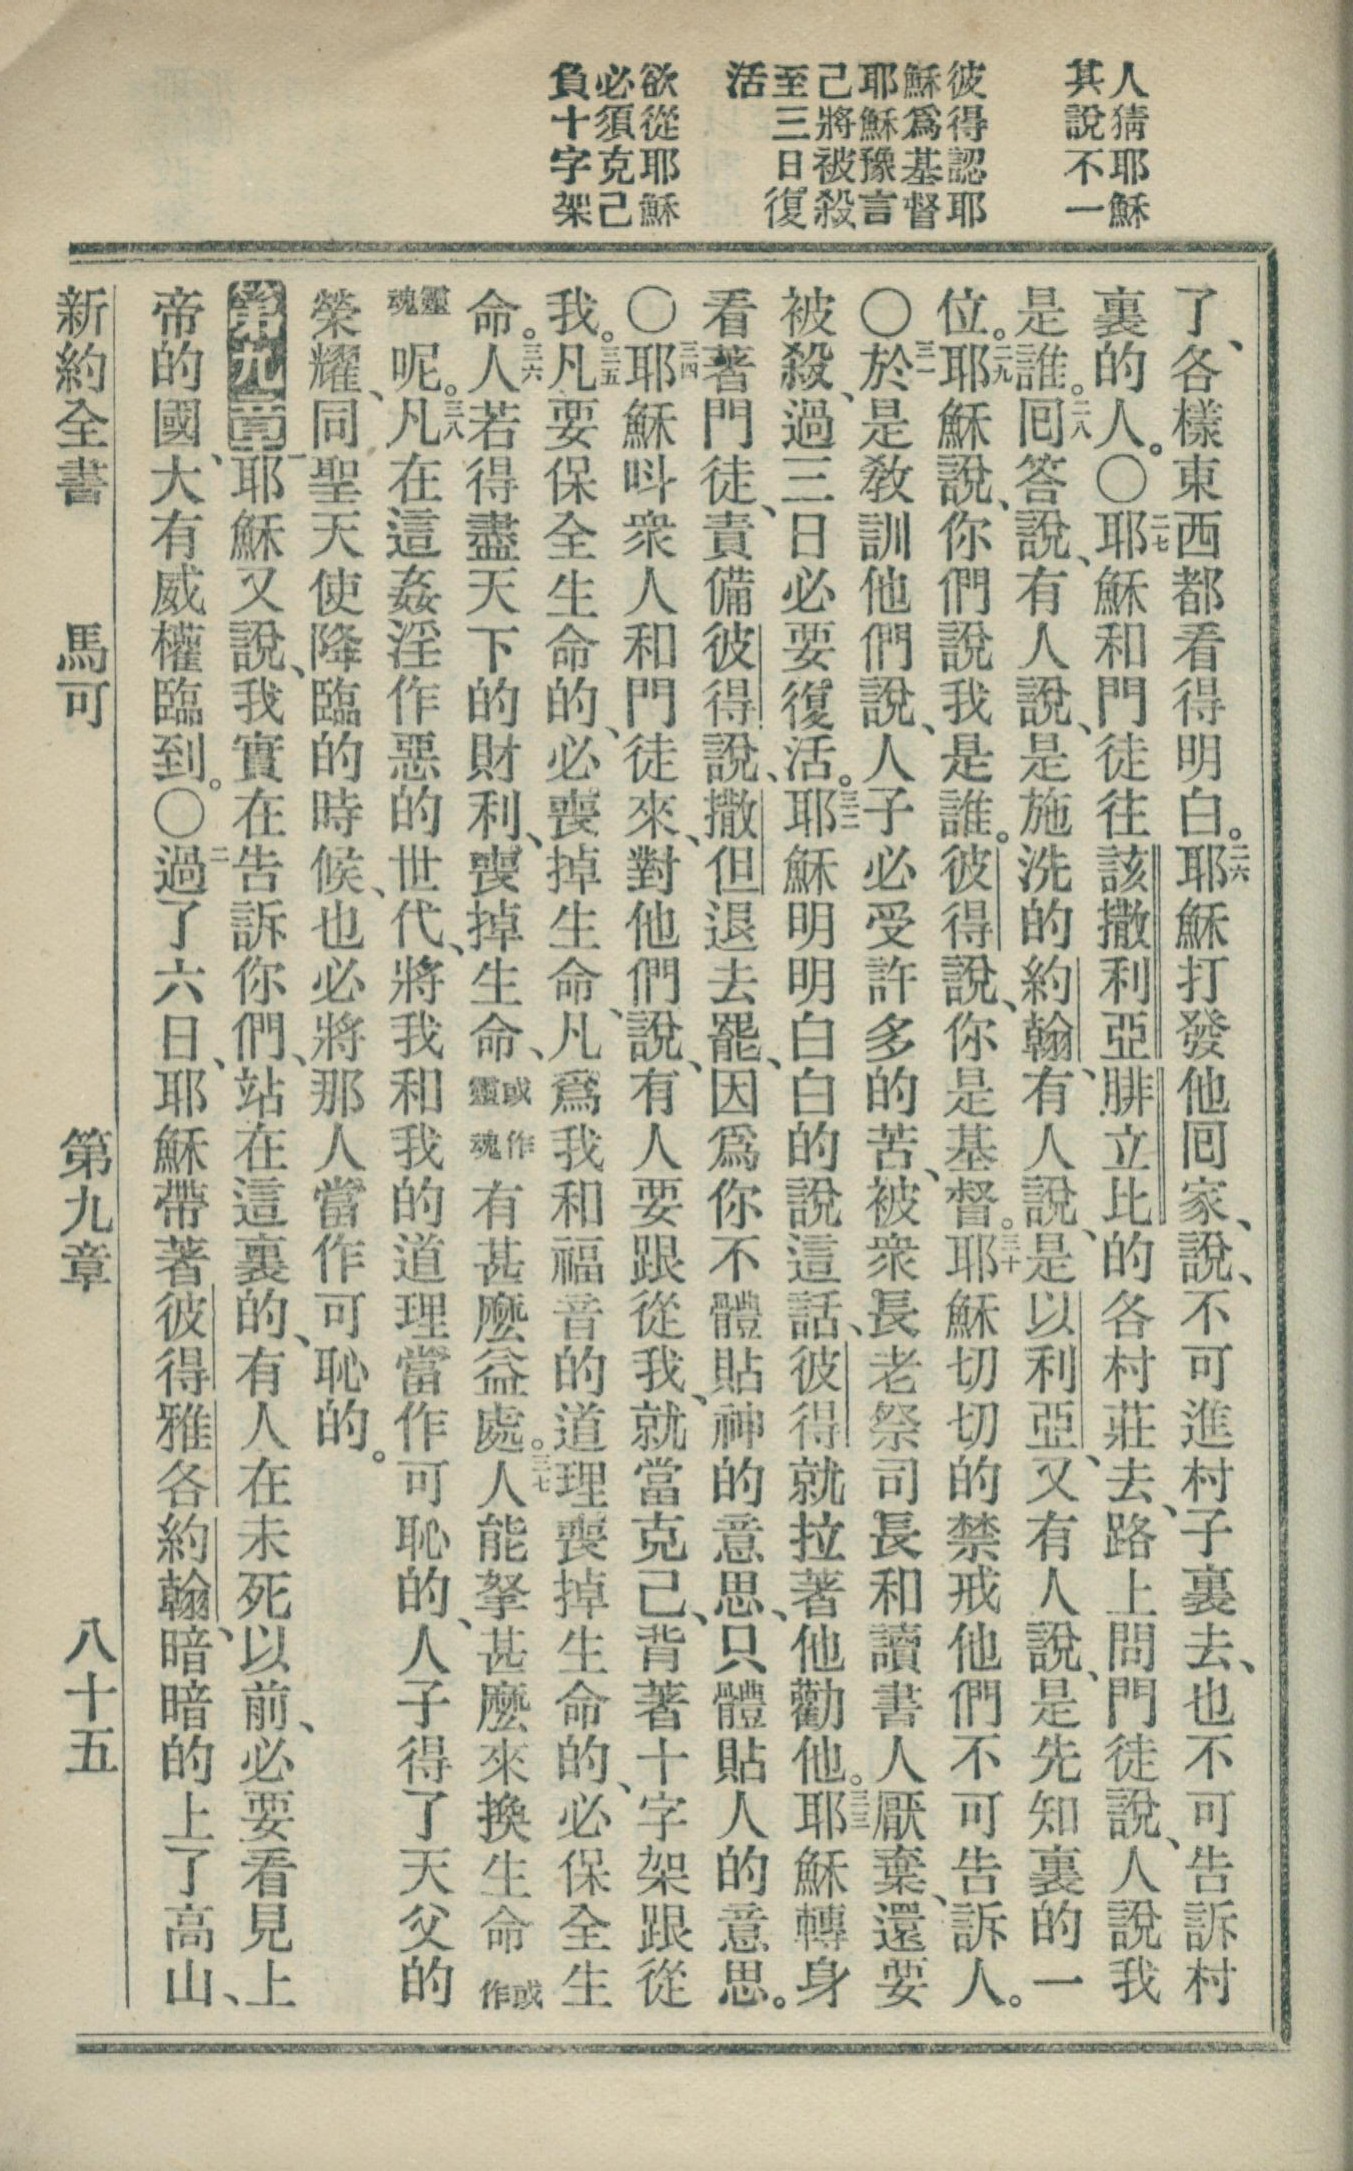 人猜耶穌
其說不一
彼得認耶
穌爲基督
耶穌豫言
己將被殺
至三日復
活
欲從耶穌
必須克己
負十字架
了、各樣東西都看得明白。二六耶穌打發他囘家、說、不可進村子裏去、也不可告訴村
裏的人。○二七耶穌和門徒往該撒利亞腓立比的各村莊去、路上問門徒說、人說我
是誰。二八囘答說、有人說、是施洗的約翰、有人說、是以利亞、又有人說、是先知裏的一
位。二九耶穌說、你們說我是誰。彼得說、你是基督。三十耶穌切切的禁戒他們不可告訴人。
○三一於是教訓他們說、人子必受許多的苦、被衆長老祭司長和讀書人厭棄、還要
被殺、過三日必要復活。三二耶穌明明白白的說這話、彼得就拉著他勸他。三三耶穌轉身
看著門徒、責備彼得說、撒但退去罷、因爲你不體貼神的意思、只體貼人的意思。
○三四耶穌呌衆人和門徒來、對他們說、有人要跟從我、就當克己、背著十字架跟從
我。三五凡要保全生命的、必喪掉生命、凡爲我和福音的道理喪掉生命的、必保全生
命。三六人若得盡天下的財利、喪掉生命、或作靈魂有甚麼益處。三七人能拏甚麼來換生命或作
靈魂呢。三八凡在這姦淫作惡的世代、將我和我的道理當作可恥的、人子得了天父的
榮耀、同聖天使降臨的時候、也必將那人當作可恥的。
第九章一耶穌又說、我實在告訴你們、站在這裏的、有人在未死以前、必要看見上
帝的國、大有威權臨到。○二過了六日、耶穌帶著彼得雅各約翰、暗暗的上了高山、
新約全書 馬可 第九章 八十五